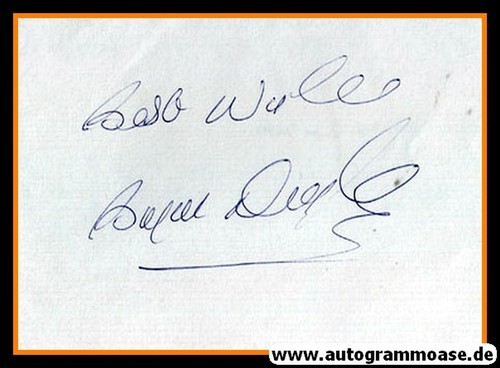 Best Wishes
Bryan Douglas
www.autogrammoase.de